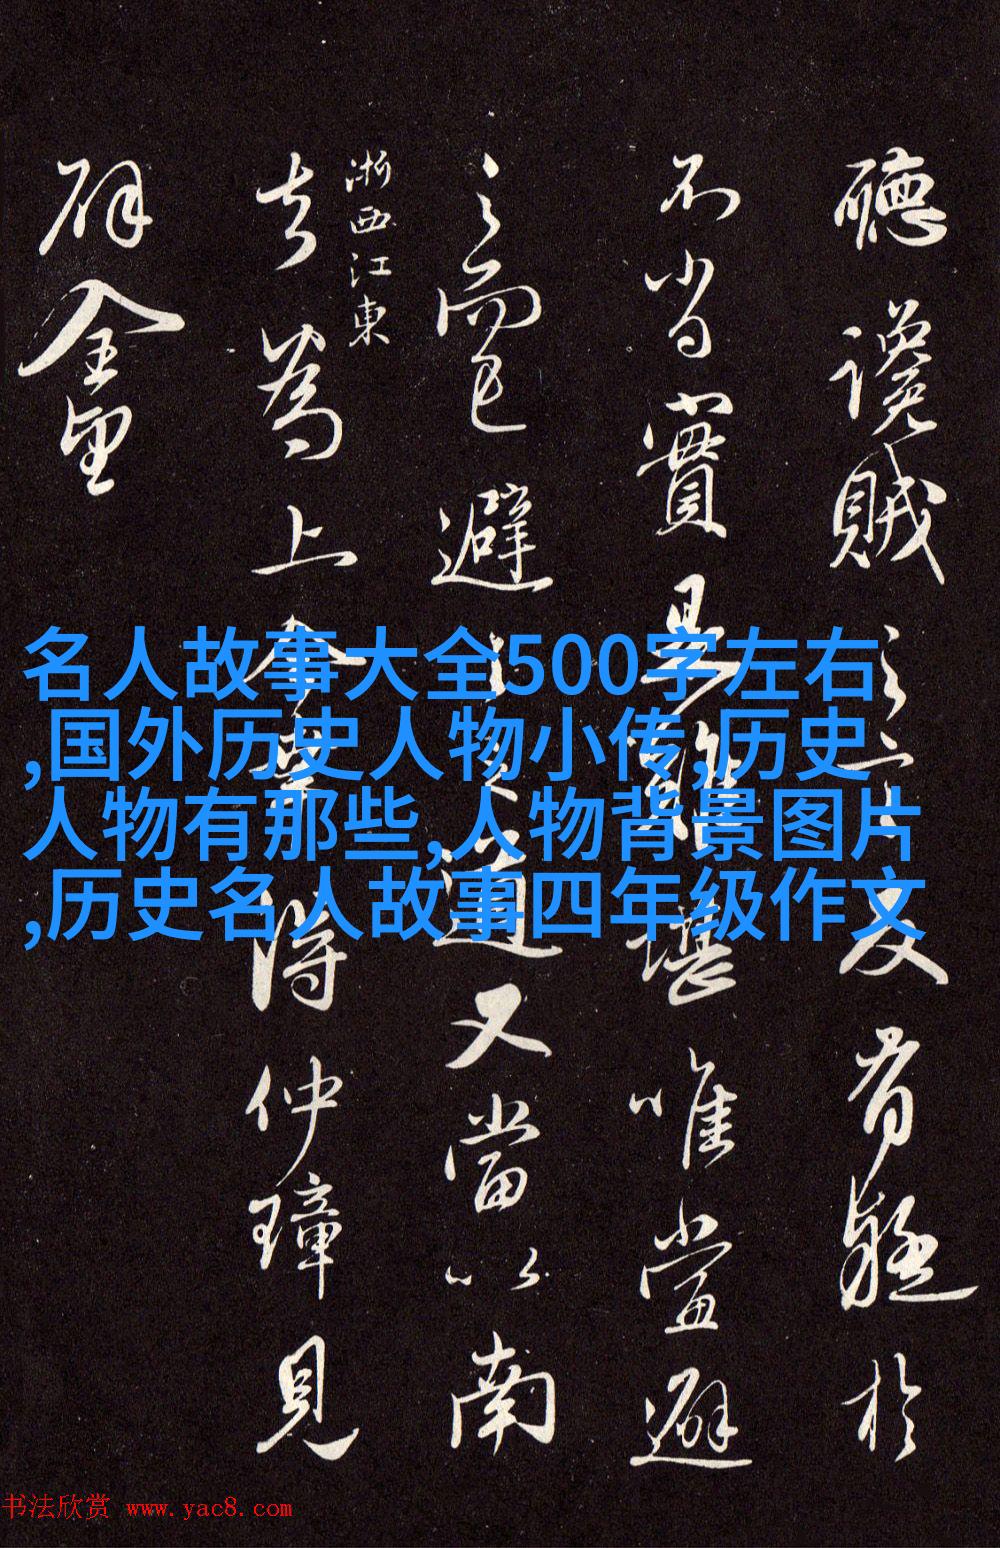 聽讒賊之又有疑於
不當實是難堪唯當避
之而已避之道又當以南
浙西江東
為上得仲璋見
辟金
名人故事大全500字左右
,国外历史人物小传,历史
人物有那些,人物背景图片
,历史名人故事四年级作文
书法欣赏 www.yac8.com